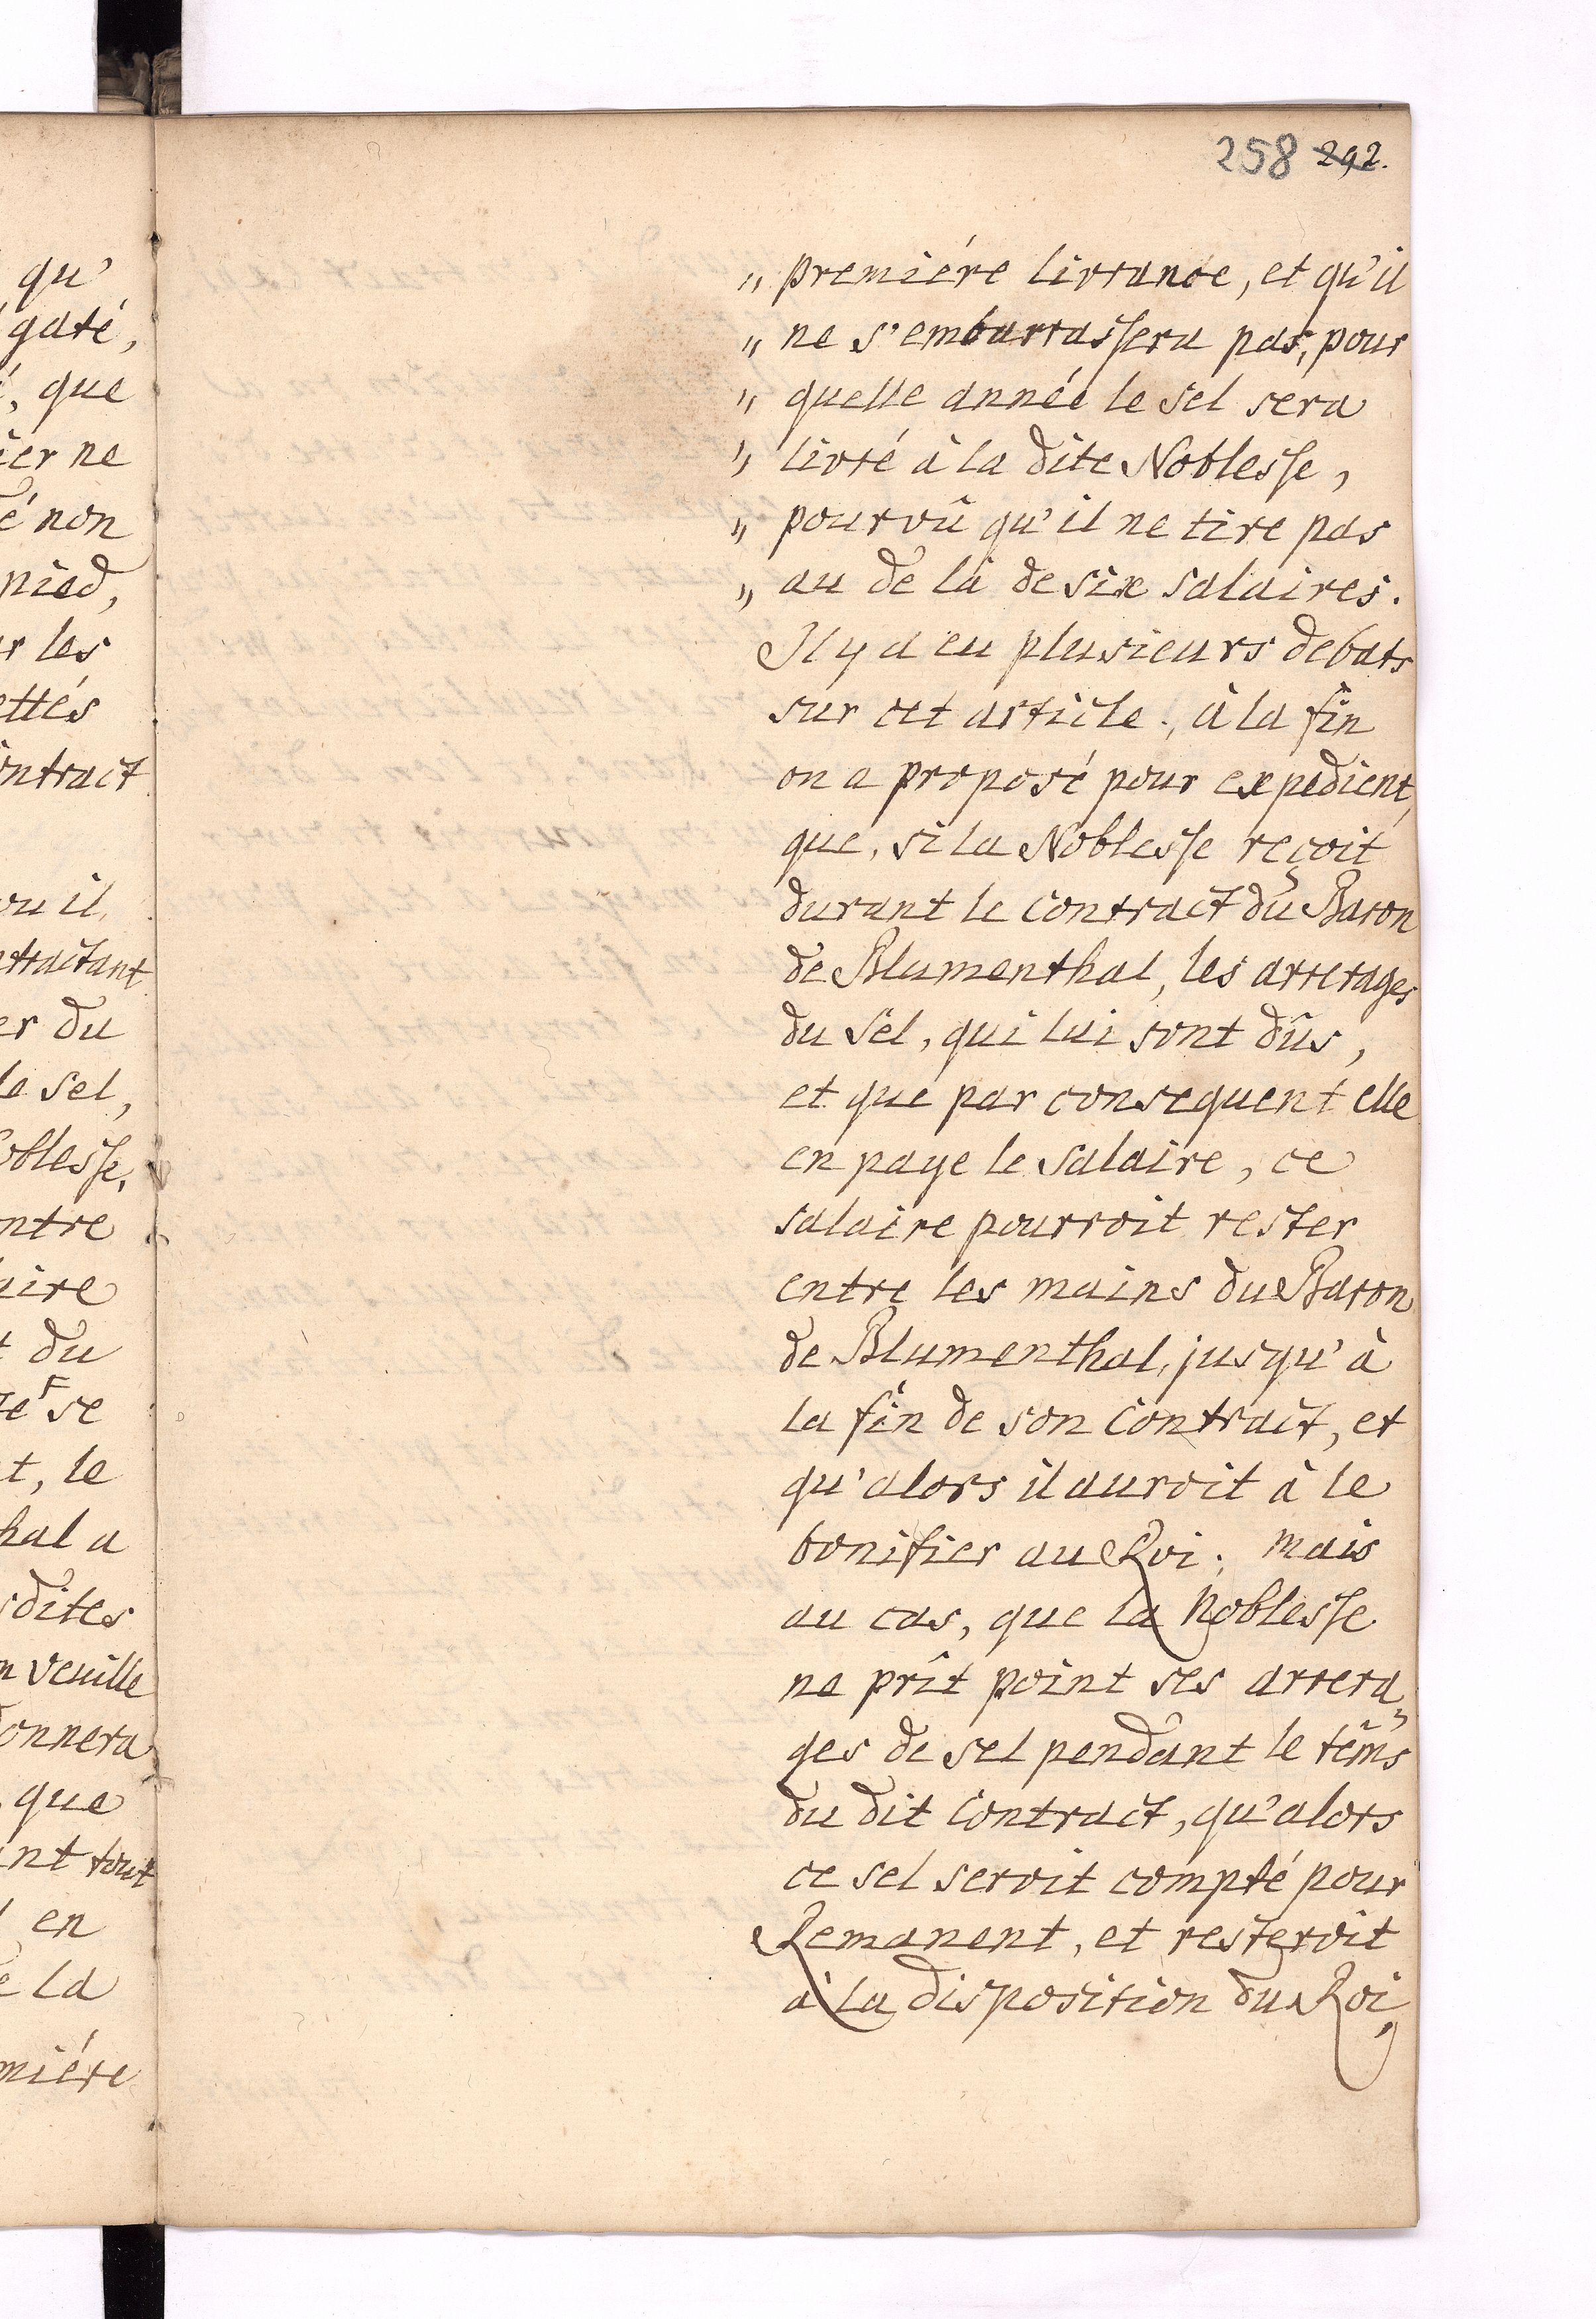 258 292.
qu'
gaté,
, que
ier ne
é non
pied,
r les
ettés
ontract
ou il
ntractant
er du
le sel,
oblesse,
ntre
aire
t du
se
t, le
hal a
sdites
n veuille
onnera
que
ant tout
en
e la
miére
„ premiére livrance, et qu'il
„ ne s'embarrassera pas, pour
„ quelle année le sel sera
„ livré à la dite Noblesse,
„ pourvû qu'il ne tire pas
„ au de là de six salaires.
Il y a eu plusieurs debats
sur cet article; à la fin
on a proposé pour expedient,
que, si la Noblesse reçoit
durant le contract du Baron
de Blumenthal, les arrerages
du sel, qui lui sont dûs,
et que par consequent elle
en paye le salaire, ce
salaire pourroit rester
entre les mains du Baron
de Blumenthal, jusqu'à
la fin de son contract, et
qu'alors il auroit à le
bonifier au Roi; mais
au cas, que la Noblesse
ne prît point ses arrera„
ges de sel pendant le têms
du dit contract, qu'alors
ce sel seroit compté pour
Remanent, et resteroit
à la disposition du Roi,